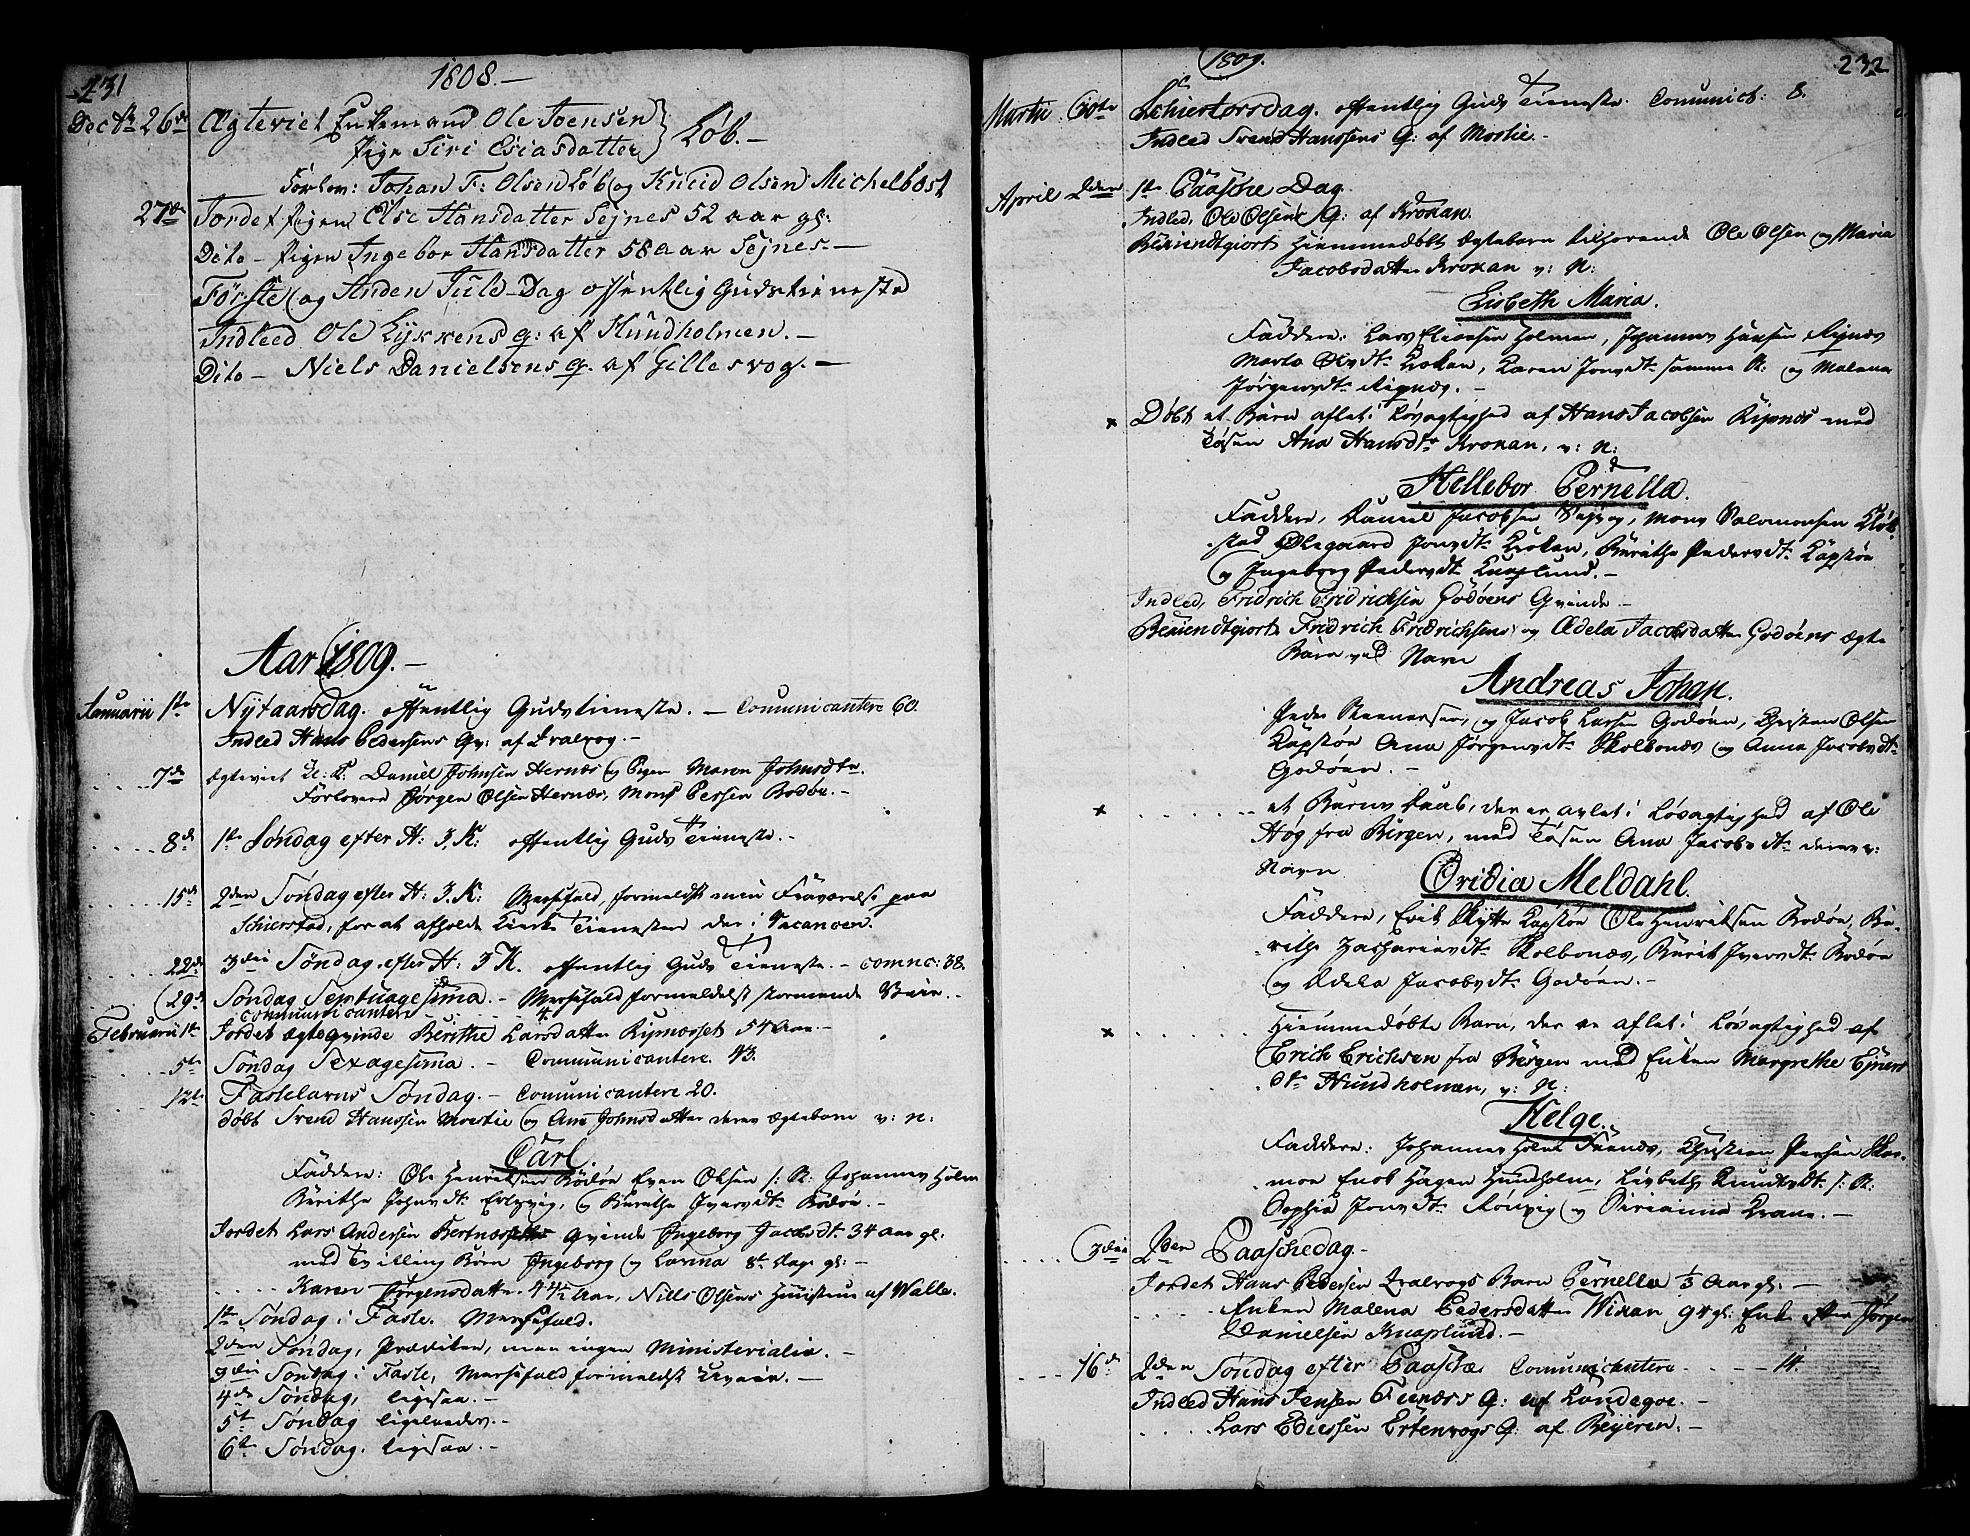 231
1808.-
Decbr 26de Ægteviet Enkemand Ole Joensen
Pige Siri Esiasdatter } Løb.-
Forlov: Johan F: Olsen Løb og Knud Olsen Michelbost
27de Jordet Pigen Else Hansdatter Sejnes 52 aar gl:
Dito - Pigen Ingebor Hansdatter 58 Aar Sejnes -
Første og Anden Jule-Dag offentlig Gudstieneste
Indleed Ole Lykkens q: af Hundholmen. -
Dito - Niels Danielsens q. af Gillesvog. -
Aar 1809. -
Januarii 1ste Nytaarsdag. offentlig Gudstieneste. - Comunicantere 60.
Indled Hans Pedersens Qv: af Qvalvog. -
7de ægteviet Daniel Johnsen Hernæs og Pigen Maren Johnsdtr.
Forlovere Jørgen Olsen Hernæs, Mons Persen Bodøe. -
8de 1ste Søndag efter H: 3. K: offentlig Guds Tieneste. -
15de 2den Søndag efter H: 3. K: Messefald, formedelst min Fraværelse paa
Schierstad, for at afholde Kirke Tienesten der i Vacancen.
22de 3die Søndag efter H: 3 K. offentlig Guds Tieneste. - comnc: 38.
29de Søndag Septuagesima. - Messefald formedelst stormende Veir. -
communicantere 4.
Februarii 1ste Jordet ægteqvinde Berithe Larsdatter Ripnæsset 54 Aar. -
5te Søndag Sexagesima. - Communicantere 43.
12te Fastelavns Søndag. - Comunicantere 20.
døbt Svend Hanssen Morstie og Ane Johnsdatter deres ægtebarn v: N:
Carl.
Faddere: Ole Henriksen Bodøe Even Olsen s: St: Johannes Holm
Berithe Johnsdt: og Berethe Iversdt: Bodøe. -
Jordet Lars Andersen Bertnæs Qvinde Ingeborg Jacobsdt: 34 Aar gl.
med Tvilling Børn Ingeborg og Lovina 8te Dage gl: -
Karen Jørgensdatter 44½ Aar, Nills Olsens Huustrue af Walle.
1ste Søndag i Faste. Messefald.
2den Søndag, Prædiken, men ingen Ministerialia. -
3die Søndag i Faste, Messefald formedelst Uveir. -
4de Søndag, ligesaa. -
5te Søndag ligeledes. -
6te Søndag. ligesaa. -
1809.
232
Martii 30te Schiertorsdag. offentlig Guds Tieneste. Comunict: 8.
Indleed Svend Hanssens Q: af Mostie. -
April 2den 1ste Paasche Dag.
Indled, Ole Olsens Q: af Krokan.
Bekiendtgiort Hiemmedøbt ægtebarn tilhørende Ole Olsen og Maria
Jacobsdatter Krokan v: N:
Lisbeth Maria.
Faddere: Lars Eliassen Holmen, Johannes Hansen Ripnæs
Marta Olsdt: Kroken, Karen Jonsdt: samme St: og Malena
Jørgensdt: Ripnæs. -
× Døbt et Barn aflet i Løsagtighed af Hans Jacobsen Ripnæs med
Tøsen Ana Hansdtr Krokan, v: N:
Hellebor Pernella.
Faddere, Daniel Jacobsen, Mons Salomonsen Kløk-
stad Olegaard Jonsdt: Kroken, Berithe Pedersdt: Kapstøe
og Ingeborg Pedersdt: Knaplund. -
Indled, Fridrich Fridrichsen Godøens Qvinde -
Bekiendtgiort Fridrich Fridrichsens og Ædela Jacobsdatter Godøens ægte
Barn ved Navn
Andreas Johan.
Peder Steenersen, og Jacob Larsen Godøen, Christen Olsen
Kapstøe Ana Jørgensdt: Skolbonæs og Anna Jacobsdt:
Godøen. -
× et Barns Daab, der er avlet i Løsagtighed af Ole
Høg fra Bergen, med Tøsen Ana Jacobsdt: deres v:
Navn
Oridia Meldahl.
Faddere, Erik Skytte Kapstøe Ole Henriksen Bodøe, Be-
rithe Zachariasdt: Skolbonæs, Berit Iversdt: Bodøe
og Ædela Jacobsdt: Godøen. -
× Hiemmedøbte Barn, der er aflet i Løsagtighed af
Erich Erichsen fra Bergen med Enken Margrethe Ejners
dtr Hundholmen, v: N:
Helge.
Faddere: Johannes Holm, Christian Persen
moe Enok Hagen Hundholm, Lisbeth Knudsdt: s: St:
Sophia Jonsdt: Rønvig og Sirianna Krane. -
3die 2den Paaschedag. -
Jordet Hans Pedersen Qvalvogs Barn Pernella ⅓ Aar gl: -
Enken Malena Pedersdatter Wikan 94 gl: Enke efter Jørgen
Danielsen Knaplund. -
16de 2den Søndag efter Paasche Comunicantere - - - - 14.
Indled Hans Jensen Fenæss Q: af Landegoe. -
Lars Ediessen Ertenvogs Q: af Beijeren. -